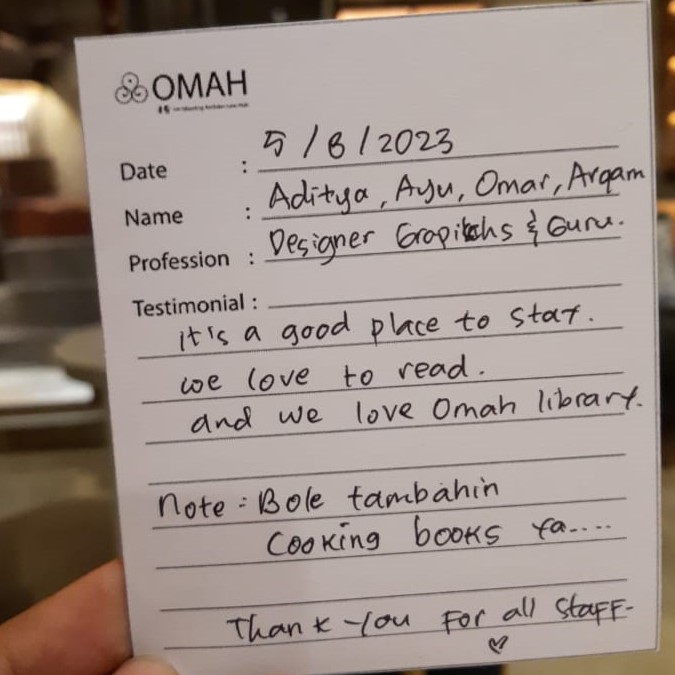 OMAH
Date : 5/8/2023
Name : Aditya, Ayu, Omar, Arqam
Profession : Designer Grapichs & Guru.
Testimonial :
it's a good place to stay.
we love to read.
and we love Omah library.
Note : Bole tambahin
Cooking books ya....
Thank-you For all staFF-